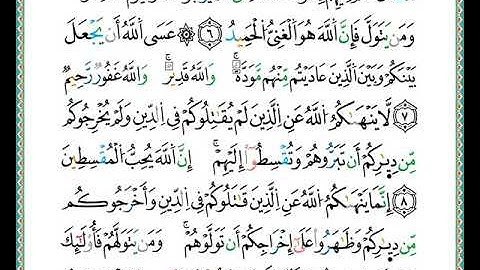 وَمَن يَتَوَلَّ فَإِنَّ ٱللَّهَ هُوَ ٱلْغَنِىُّ ٱلْحَمِيدُ ۝٦ ۞ عَسَى ٱللَّهُ أَن يَجْعَلَ
بَيْنَكُمْ وَبَيْنَ ٱلَّذِينَ عَادَيْتُم مِّنْهُم مَّوَدَّةً ۚ وَٱللَّهُ قَدِيرٌ ۚ وَٱللَّهُ غَفُورٌ رَّحِيمٌ
۝٧ لَّا يَنْهَىٰكُمُ ٱللَّهُ عَنِ ٱلَّذِينَ لَمْ يُقَـٰتِلُوكُمْ فِى ٱلدِّينِ وَلَمْ يُخْرِجُوكُم
مِّن دِيَـٰرِكُمْ أَن تَبَرُّوهُمْ وَتُقْسِطُوٓا۟ إِلَيْهِمْ ۚ إِنَّ ٱللَّهَ يُحِبُّ ٱلْمُقْسِطِينَ
۝٨ إِنَّمَا يَنْهَىٰكُمُ ٱللَّهُ عَنِ ٱلَّذِينَ قَـٰتَلُوكُمْ فِى ٱلدِّينِ وَأَخْرَجُوكُم
مِّن دِيَـٰرِكُمْ وَظَـٰهَرُوا۟ عَلَىٰٓ إِخْرَاجِكُمْ أَن تَوَلَّوْهُمْ ۚ وَمَن يَتَوَلَّهُمْ فَأُو۟لَـٰٓئِكَ